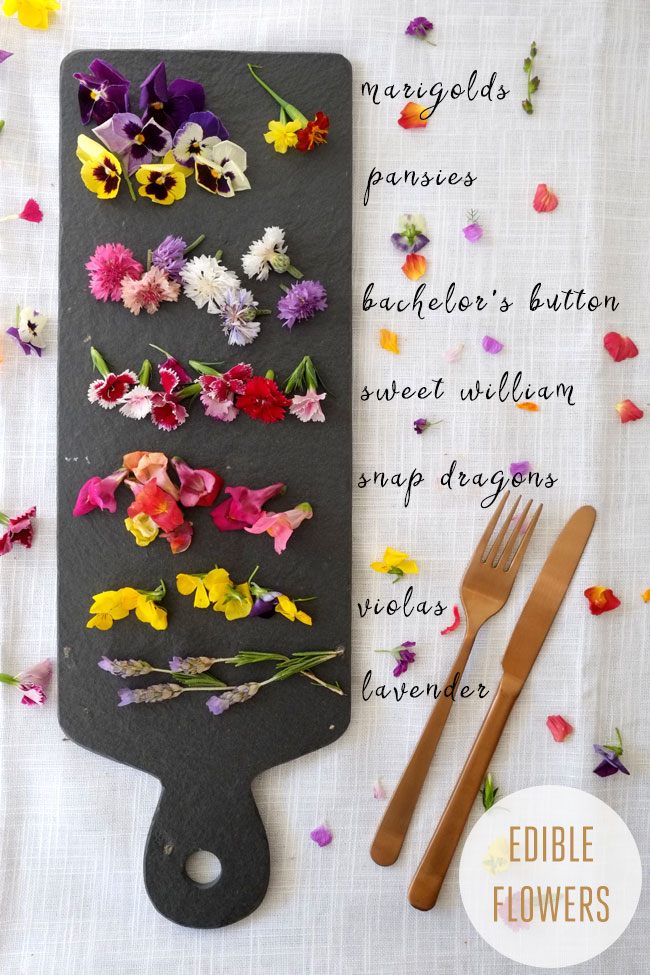 marigolds
pansies
bachelor's button
sweet william
snap dragons
violas
lavender
EDIBLE
FLOWERS